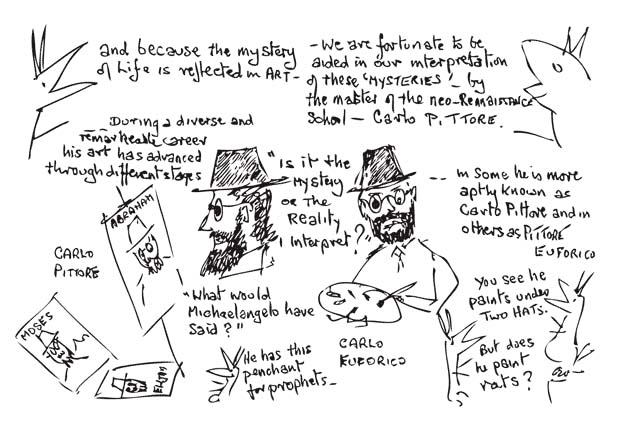 and because the mystery
of Life is reflected in ART -
- We are fortunate to be
aided in our interpretation
of these 'MYSTERIES' - by
the master of the neo-Renaissance
School - Carlo PITTORE.
During a diverse and
remarkable career
his art has advanced
through different stages
"Is it the
Mystery
or The
Reality
I Interpret?"
-- in Some he is more
aptly known as
Carlo Pittore and in
others as PITTORE
EUFORICO
ABRAHAM
CARLO
PITTORE
MOSES
"What would
Michaelangelo have
Said?"
CARLO
EUFORICO
You see he
paints under
TWO HATS.
But does
he paint
rats?
He has this
penchant
for prophets -